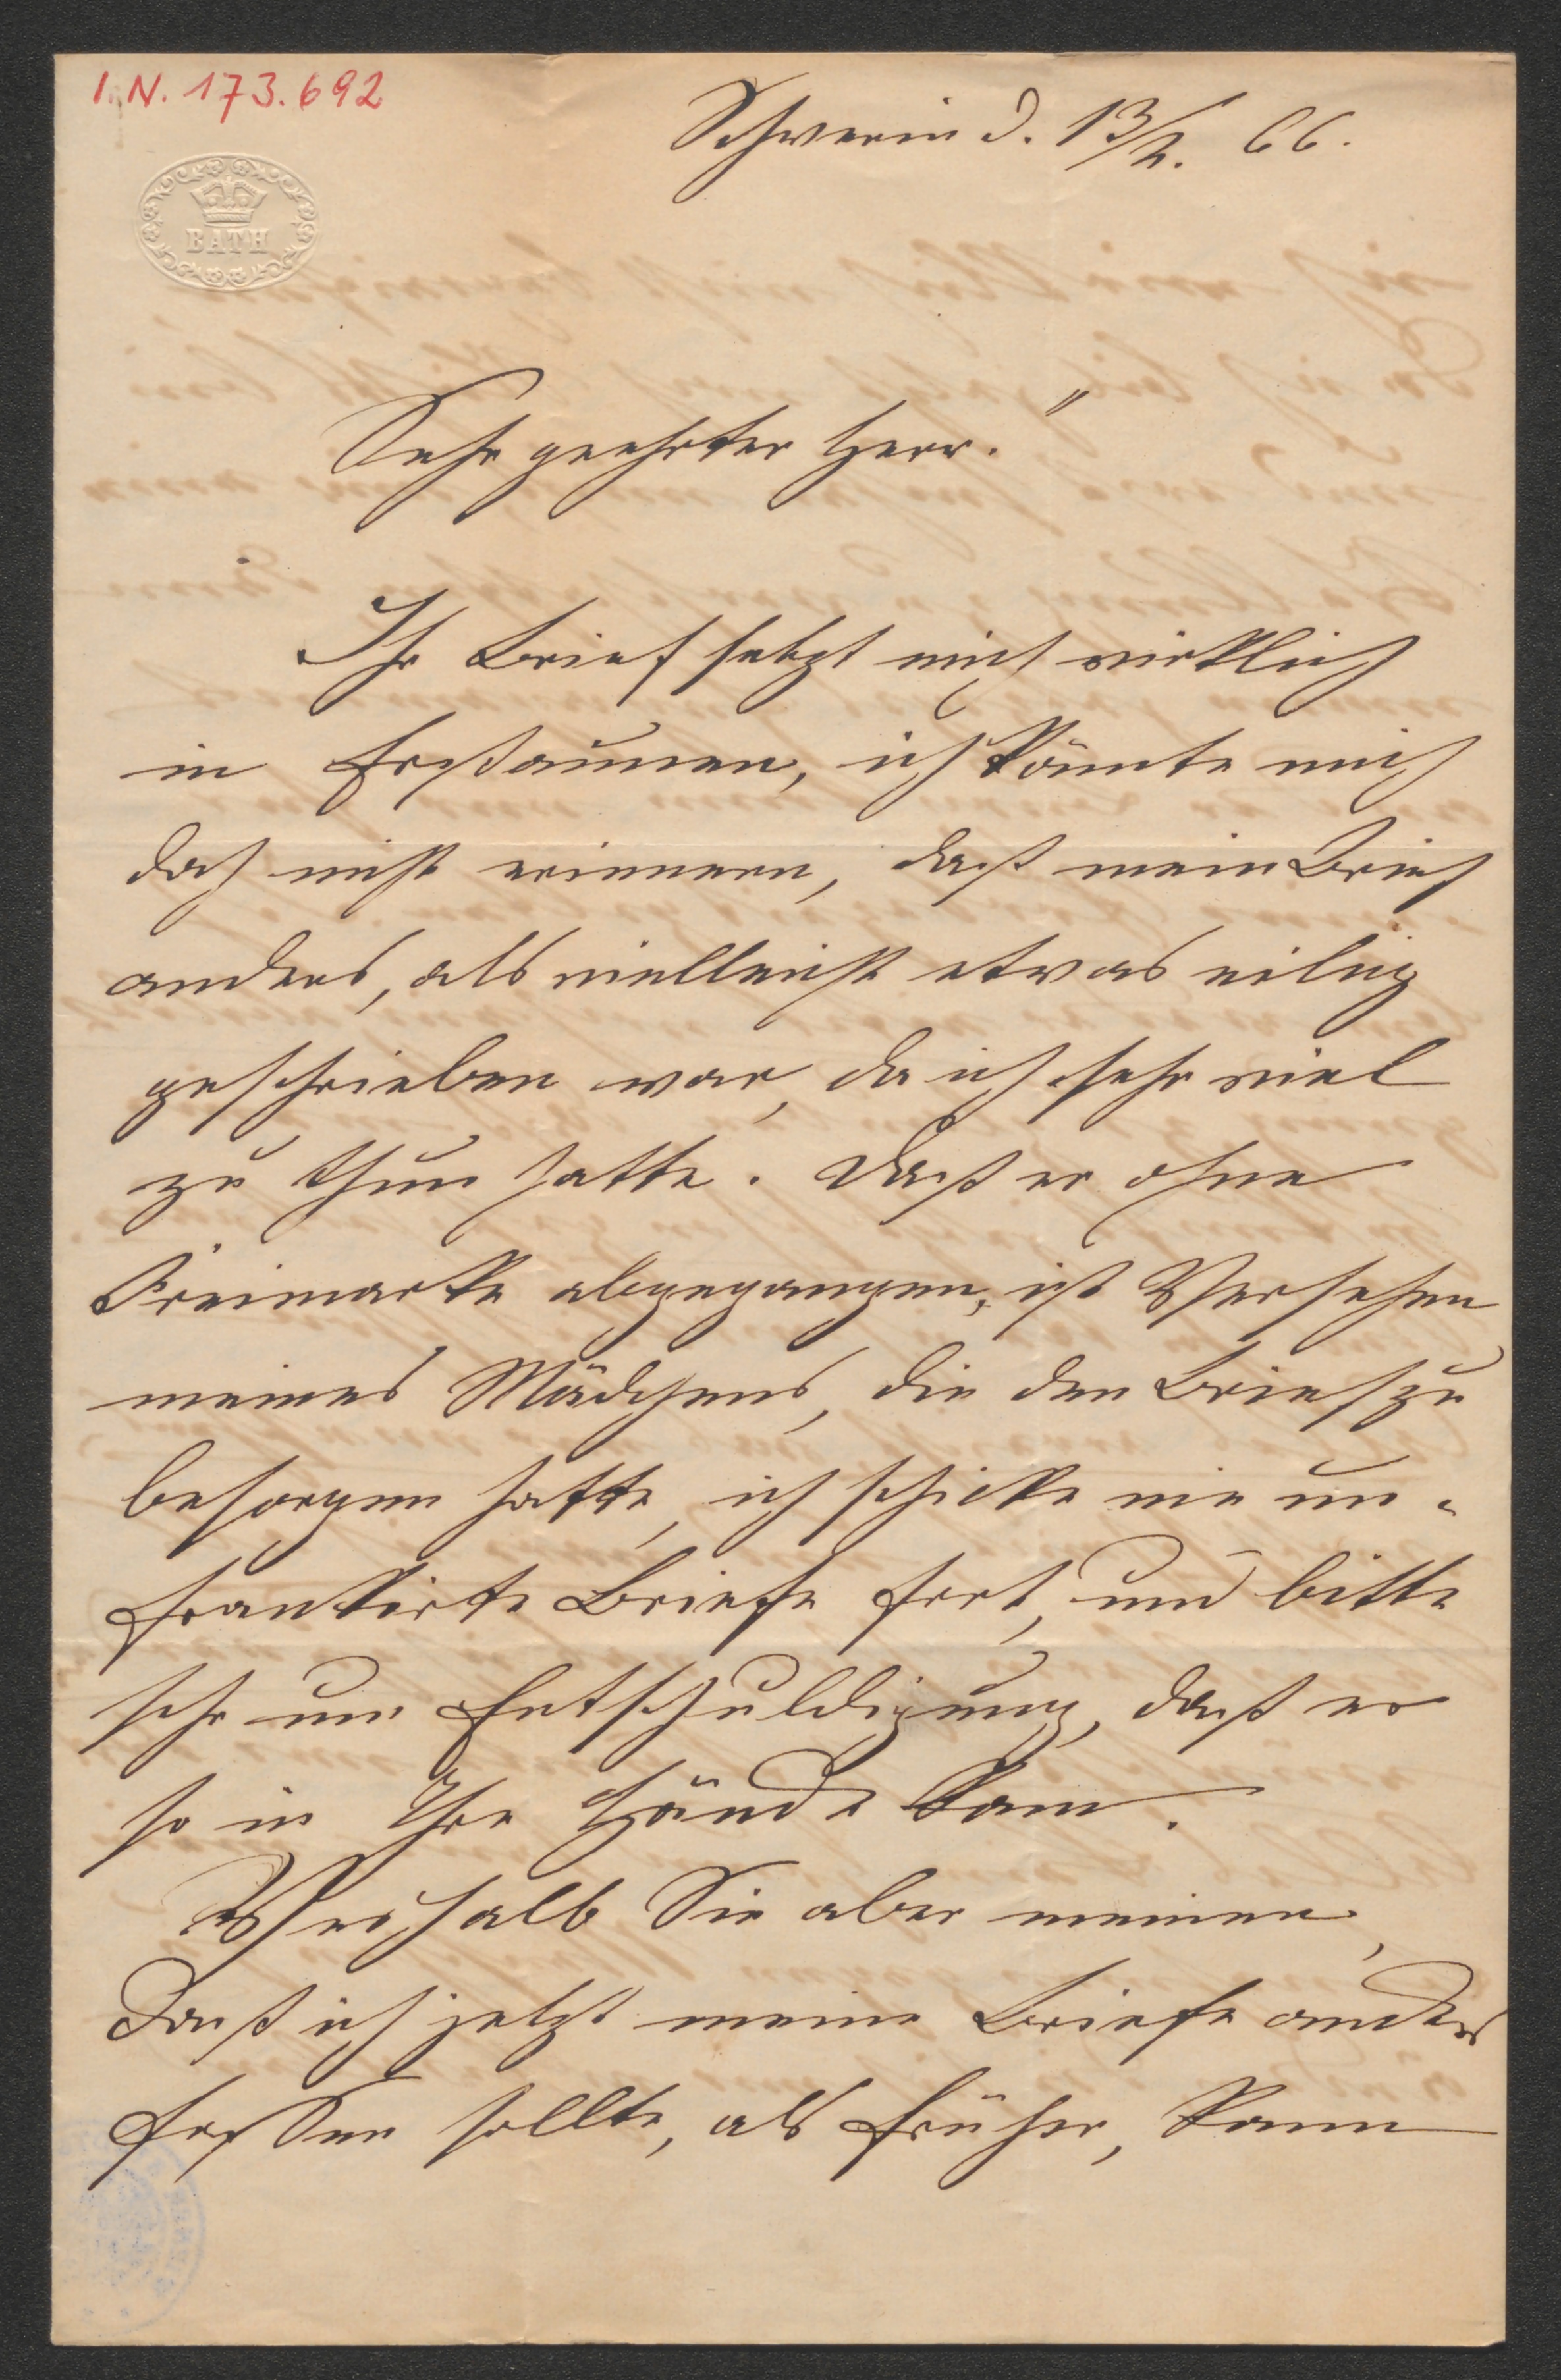 I. N. 173.692
Schwerin d. 13/2. 66.
BATH
Sehr geehrter Herr."
Ihr Brief setzt mich wirklich
in Erstaunen, ich könnte mich
doch nicht erinnern, daß mein Brief
anders, als vielleicht etwas eilig
geschrieben war, da ich sehr viel
zu thun hatte. Daß er ohne
Freimarke abgegangen, ist Versehen
meines Mädchens, die den Brief zu
besorgen hatte, ich schicke nie un-
frankirte Briefe fort, und bitte
sehr um Entschuldigung, daß er
so in Ihre Hände kam.
Weshalb Sie aber meinen,
daß ich jetzt meine Briefe anders
sollte, als früher, kann